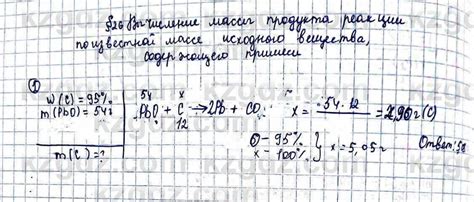 §26 Вычисление массы продукта реакции
по известной массе исходного вещества,
содержащего примеси
①
W(C) = 95%
m(PbO) = 54г
m(C) = ?
54 x
PbO + C → 2Pb + CO₂
12
x = 54·12 = 2,90г (C)
95%
x - 100% } x = 5,05г
Ответ: 5г